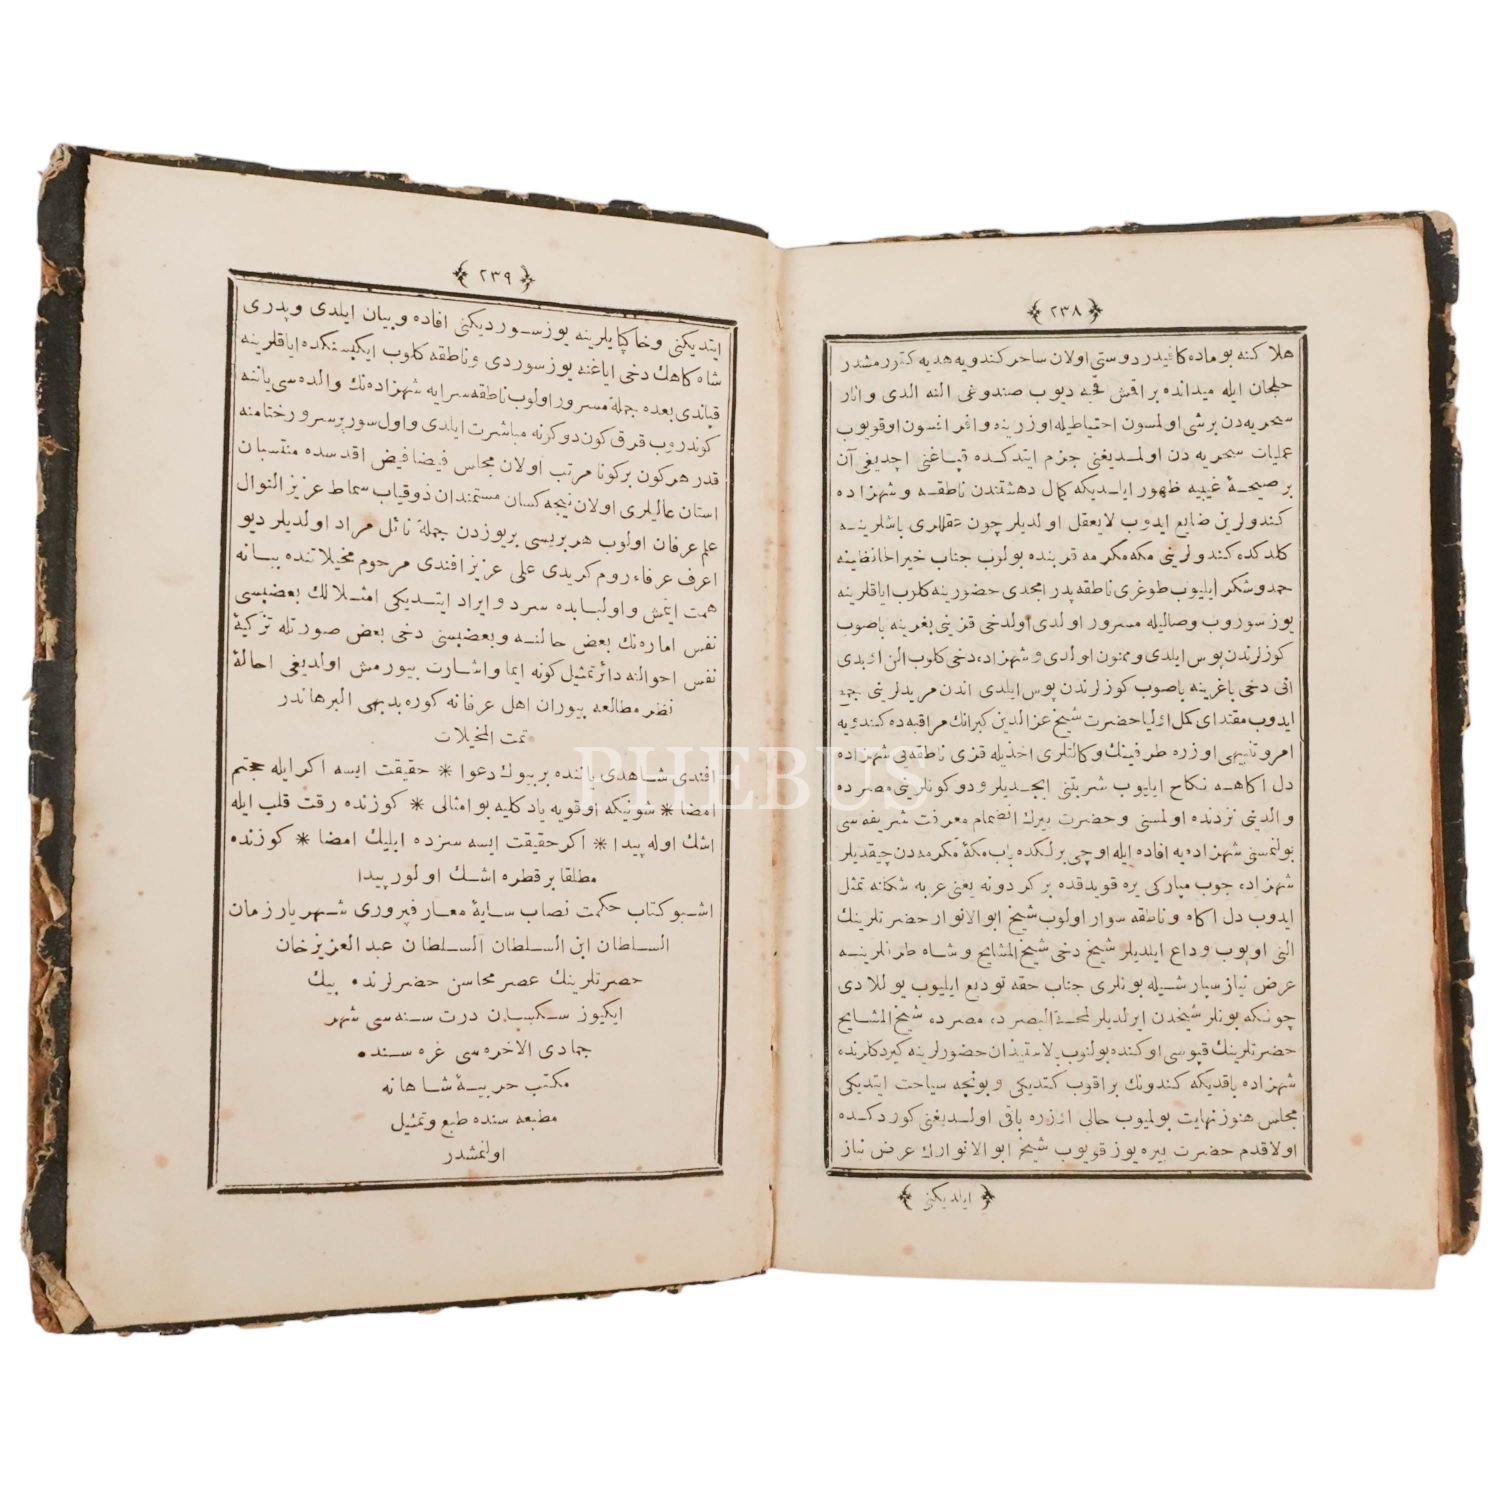 ٢٣٨
هلا كنه بوماده كافيدر دوستى اولان ساحر كندويه هديه كتورر مشدر
خلجان ايله ميدانده براقمش قحبه ديوب صندوغى النه الدى واثار
سحريه دن برشى اولمسون احتياطيله اوزرينه وافر افسون اوقويوب
عمليات سحريه دن اولمديغنى جزم ايتدكده قپاغنى اچديغى آن
برصيحهٔ غيبيه ظهور ايلديكه كمال دهشتندن ناطقه وشهزاده
كندولرين ضايع ايدوب لايعقل اولديلر چون عقللرى باشلرينه
كلدكده كندولرينى مكه مكرمه قربنده بولوب جناب خيرالحافظينه
حمدوشكر ايليوب طوغرى ناطقه پدر امجدى حضورينه كلوب اياقلرينه
يوز سوروب وصاليله مسرور اولدى اولدخى قزينى بغرينه باصوب
كوزلرندن پوس ايلدى وممنون اولدى وشهزاده دخى كلوب الن اوپدى
انى دخى باغرينه باصوب كوزلرندن پوس ايلدى اندن مريدلرينى جمع
ايدوب مقتداى كمل اوليا حضرت شيخ عزالدين كبرانك مراقبه ده كندويه
امر وتنبيهى اوزره طرفينك وكالتلرى اخذيله قزى ناطقه يى شهزاده
دل اكاهه نكاح ايليوب شربتنى ايچديلر ودوكونلرينى مصرده
والدينى نزدنده اولمسنى وحضرت پيرك انضمام معرفت شريفه سى
بولنمسنى شهزاده يه افاده ايله اوچى برلكده باب مكهٔ مكرمه دن چيقديلر
شهزاده چوب مباركى يره قويدقده بر كردونه يعنى عربه شكلنه تمثل
ايدوب دل اكاه وناطقه سوار اولوب شيخ ابوالانوار حضرتلرينك
النى اوپوب وداع ايلديلر شيخ دخى شيخ المشايخ وشاه طرفلرينه
عرض نياز سپارشيله بونلرى جناب حقه توديع ايليوب يوللادى
چونكه بونلر شيخدن ايرلديلر لمحة البصرده مصرده شيخ المشايخ
حضرتلرينك قپوسى اوكنده بولنوب بلاستيذان حضورلرينه كيردكلرنده
شهزاده باقديكه كندونك براقوب كتديكى وبونجه سياحت ايتديكى
مجلس هنوز نهايت بولميوب حالى اوزره باقى اولديغنى كوردكده
اولا قدم حضرت پيره يوز قويوب شيخ ابوالانوارك عرض نياز
ايلديكنى
٢٣٩
ايتديكنى وخاكپايلرينه يوز سورديكنى افاده وبيان ايلدى وپدرى
شاه كاهك دخى اياغنه يوز سوردى وناطقه كلوب ايكيسنكده اياقلرينه
قپاندى بعده جمله مسرور اولوب ناطقه سرايه شهزاده نك والده سى ياننه
كوندروب قرق كون دوكرنه مباشرت ايلدى واول سور پرسرور ختامنه
قدر هر كون بر كونا مرتب اولان مجلس فيضافيض اقدسده منتسبان
استان عاليلرى اولان نيجه كسان مستمندان ذوقياب سماط عزيز النوال
علم عرفان اولوب هر بريسى بر يوزدن جمله نائل مراد اولديلر ديو
اعرف عرفاء روم كريدى على عزيز افندى مرحوم مخيلاتنده بيانه
همت ايتمش واولبابده سرد وايراد ايتديكى امثلالك بعضيسى
نفس اماره نك بعض حالنه وبعضيسنى دخى بعض صورتله تزكيهٔ
نفس احوالنه دائر تمثيل كونه ايما واشارت بيورمش اولديغى احالهٔ
نظر مطالعه بيوران اهل عرفانه كوره بديهى البرهاندر
تمت المخيلات
افندى شاهدى ياننده بر بيوك دعوا * حقيقت ايسه اكر ايله مجتم
امضا * شونيكه اوقويه ياد كليه بو امثالى * كوزنده رقت قلب ايله
اشك اوله پيدا * اكر حقيقت ايسه سزده ايليك امضا * كوزنده
مطلقا بر قطره اشك اولور پيدا
اشبو كتاب حكمت نصاب سايهٔ معارفپرورى شهريار زمان
السلطان ابن السلطان السلطان عبد العزيز خان
حضرتلرينك عصر محاسن حضرلرنده بيك
ايكيوز سكسان درت سنه سى شهر
جمادى الاخره سى غره سنده
مكتب حربيهٔ شاهانه
مطبعه سنده طبع وتمثيل
اولنمشدر
PHEBUS